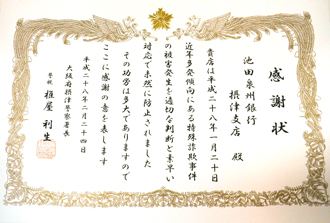 感謝状
池田泉州銀行
摂津支店 殿
貴店は平成二十八年一月二十日
近年多発傾向にある特殊詐欺事件
の被害発生を適切な判断と素早い
対応で未然に防止されました
その功労は多大でありますので
ここに感謝の意を表します
平成二十八年二月二十四日
大阪府摂津警察署長
警視 椎屋 利生